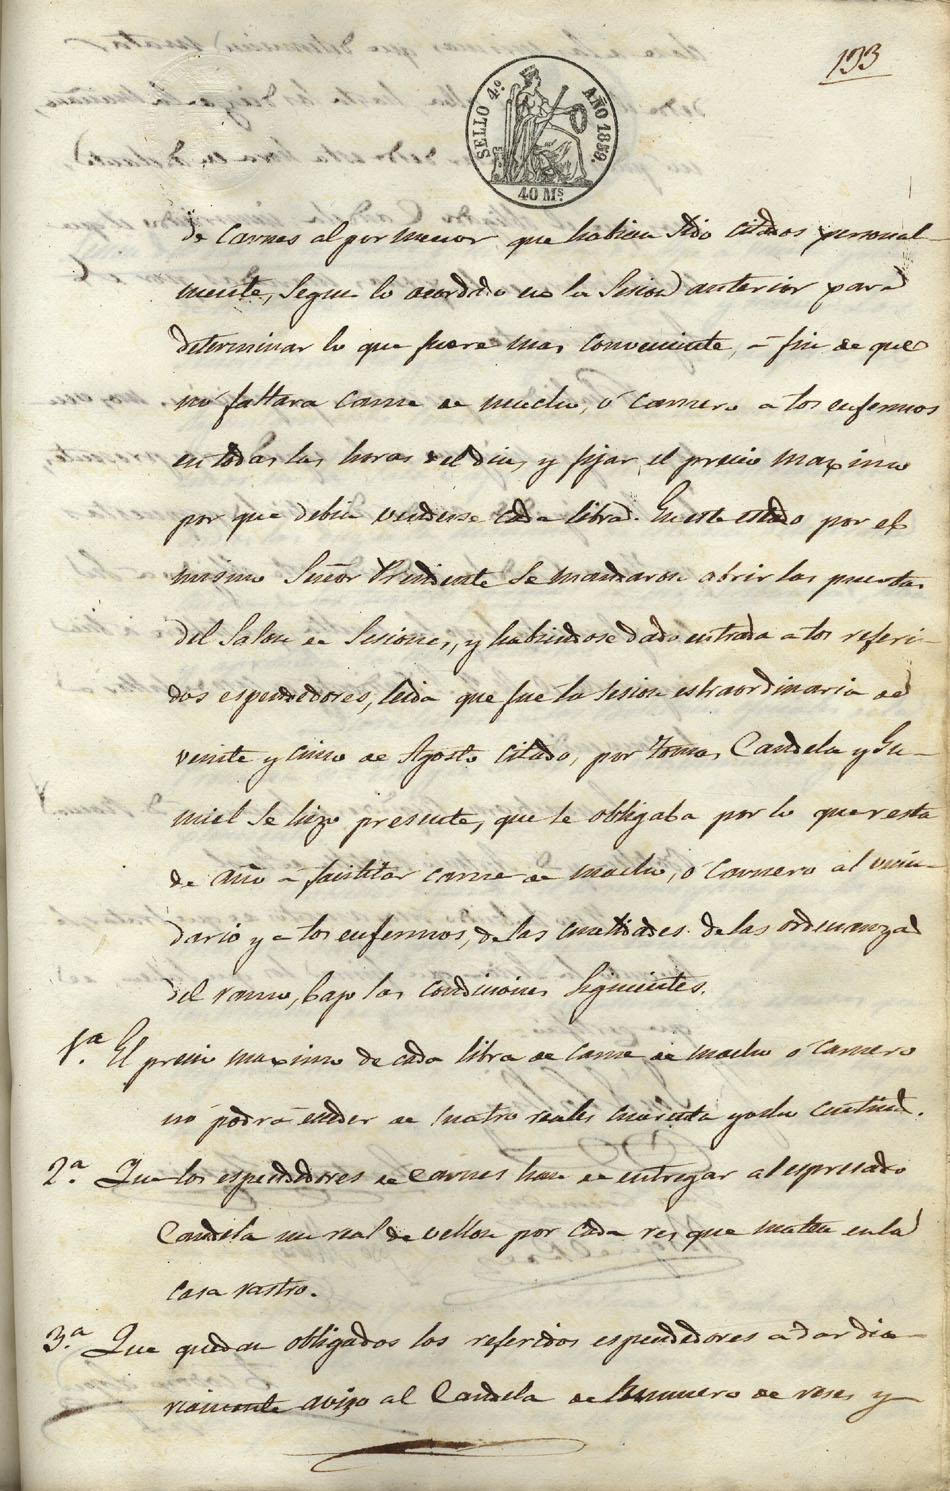 133
SELLO 4.º AÑO 1859.
40 Ms
de carnes al por menor que habian sido citados personal-
mente, segun lo acordado en la Sesion anterior para
determinar lo que fuere mas conveniente, á fin de que
nó faltara carne de macho, ó carnero a los enfermos
en todas las horas del dia, y fijar el precio maximo
por que debia venderse cada libra. En este estado por el
mismo Señor Presidente se mandaron abrir las puertas
del Salon de Sesiones, y habiendose dado entrada a los referi-
dos espendedores, leida que fué la sesion estraordinaria de
veinte y cinco de Agosto citado, por Tomas Candela y Gu-
miel se hizo presente, que se obligaba por lo que resta
de año á facilitar carne de macho, ó carnero al vecin-
dario y a los enfermos, de las cualidades de las ordenanzas
del ramo, bajo las condiciones siguientes.
1.ª El precio maximo de cada libra de carne de macho ó carnero
nó podrá eceder de cuatro reales cuarenta y ocho centimos.
2.ª Que los espendedores de carnes han de entregar al espresado
Candela un real de vellon por cada res que maten en la
casa rastro.
3.ª Que quedan obligados los referidos espendedores a dar dia-
riamente aviso al Candela del numero de reses y